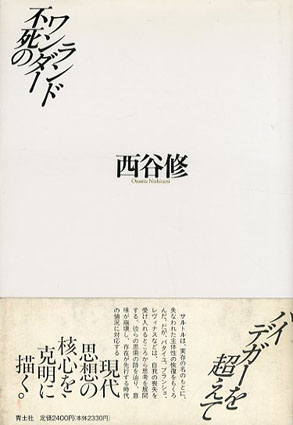 不死の
ワンダー
ランド
西谷修
Osamu Nishitani
ハイ
デガーを
超えて
サルトルは、実存の名のもとに、
失なわれた主体性の恢復をもくろ
んだ。だが、バタイユ、ブランショ、
レヴィナスなどは、自我の喪失を
受け入れるところから思考を展開
する。彼らの思索の跡を辿り、意
味が崩壊し、存在が先行する時代
の情況に対応する、
現代
思想の
核心を
克明に
描く。
青土社 定価2400円(本体2330円)